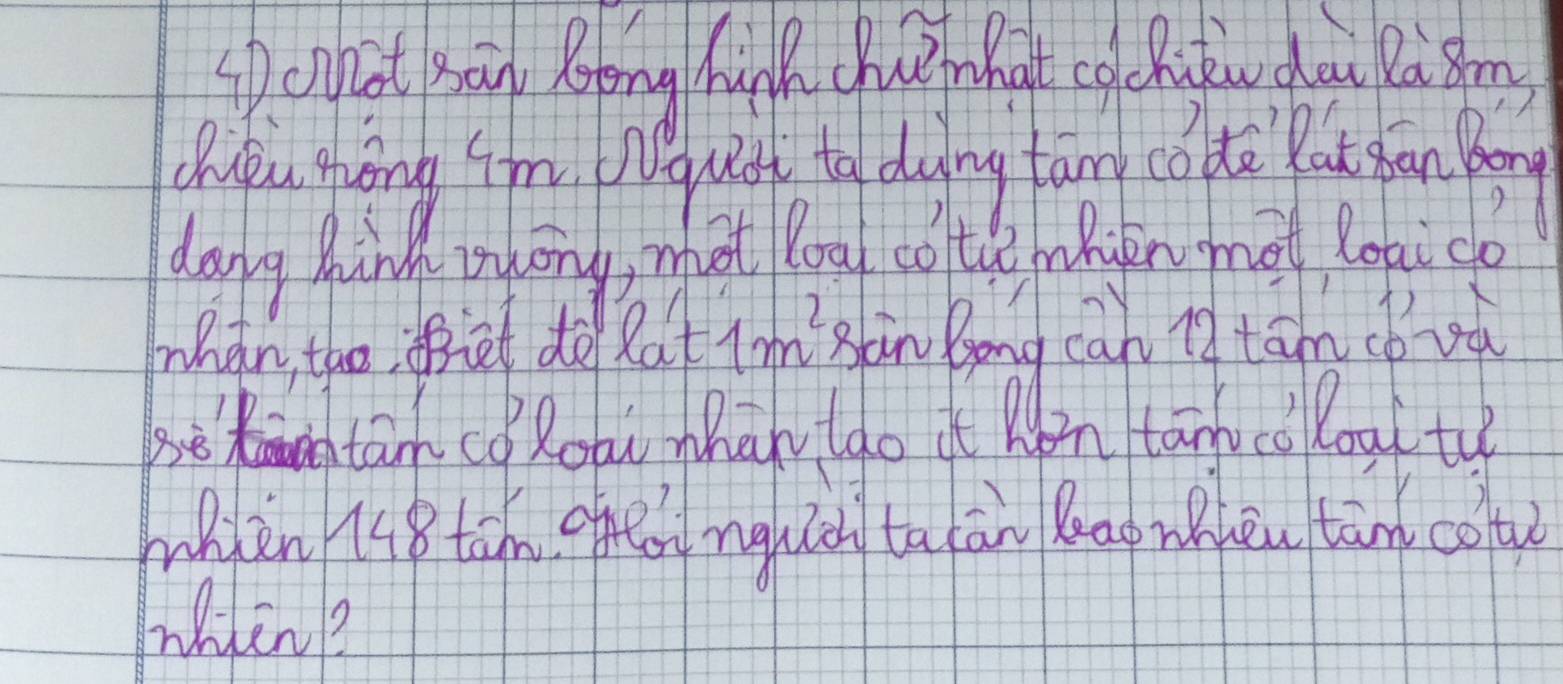 4) Một sân bóng hình chữ nhật có chiều dài là 8m,
chiều rộng 4m. Người ta dùng tấm cỏ để lát sân bóng
dạng hình vuông, một loại cỏ tự nhiên một loại cỏ
nhân tạo. Biết để lát 1m² sân bóng cần 12 tấm cỏ và
số tấm cỏ loại nhân tạo ít hơn tấm cỏ loại tự
nhiên 148 tấm. Hỏi người ta cần bao nhiêu tấm cỏ tự
nhiên?